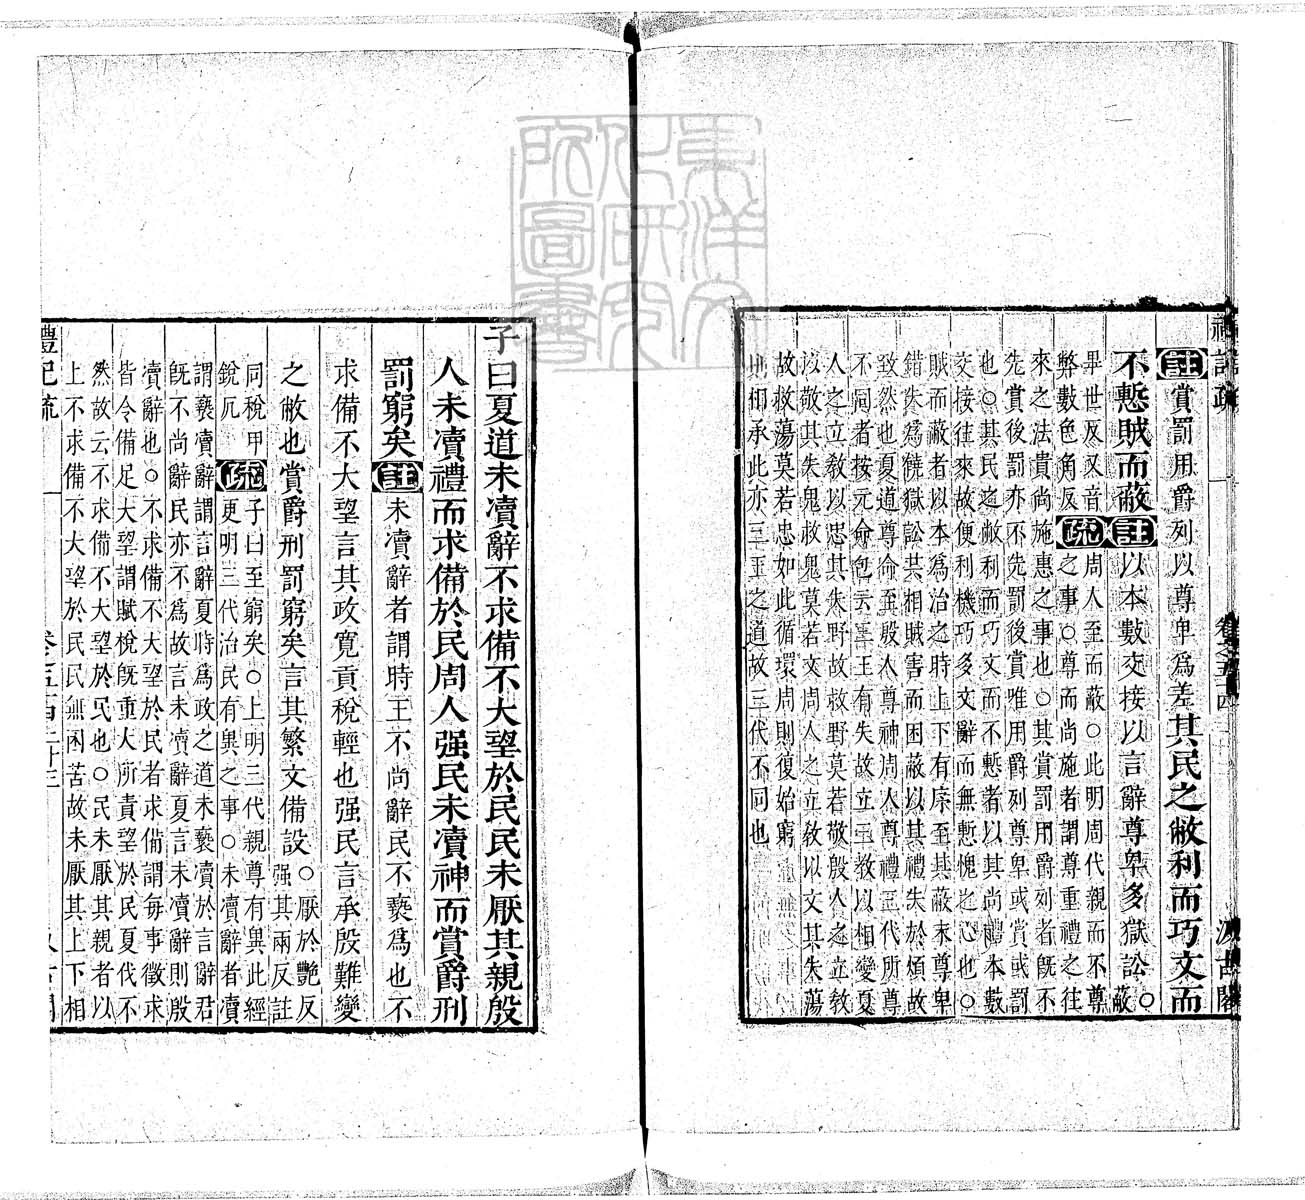 禮記疏 卷之五十四 汲古閣
註賞罰用爵列以尊卑為差其民之敝利而巧文而
不慙賊而蔽註以本數交接以言辭尊卑多獄訟○蔽
畢世反又音疏周人至而蔽○此明周代親而不尊
弊數色角反之事○尊而尚施者謂尊重禮之往
來之法貴尚施惠之事也○其賞罰用爵列者既不
先賞後罰亦不先罰後賞唯用爵列尊卑或賞或罰
也○其民之敝利而巧文而不慙者以其尚禮本數
交接往來故便利機巧多文辭而無慙愧之心也○
賊而蔽者以本為治之時上下有序至其蔽末尊卑
錯失為饒獄訟共相賊害而困蔽以其禮失於煩故
致然也夏道尊命至殷人尊神周人尊禮三代所尊
不同者按元命包云三王有失故立三教以相變夏
人之立教以忠其失野故救野莫若敬殷人之立教
以敬其失鬼救鬼莫若文周人之立教以文其失蕩
故救蕩莫若忠如此循環周則復始窮
地相承此亦三王之道故三代不同也
子曰夏道未瀆辭不求備不大望於民民未厭其親殷
人未瀆禮而求備於民周人强民未瀆神而賞爵刑
罰窮矣註未瀆辭者謂時王不尚辭民不褻為也不
求備不大望言其政寬貢稅輕也强民言承殷難變
之敝也賞爵刑罰窮矣言其繁文備設○厭於艷反强其兩反註
同稅甲銳兀疏子曰至窮矣○上明三代親尊有異此經
更明三代治民有異之事○未瀆辭者瀆
謂褻瀆辭謂言辭夏時為政之道未褻瀆於言辭君
既不尚辭民亦不為故言未瀆辭夏言未瀆辭則殷
瀆辭也○不求備不大望於民者求備謂每事徵求
皆令備足大望謂賦稅既重大所責望於民夏代不
然故云不求備不大望於民也○民未厭其親者以
上不求備不大望於民民無困苦故未厭其上下相
禮記疏